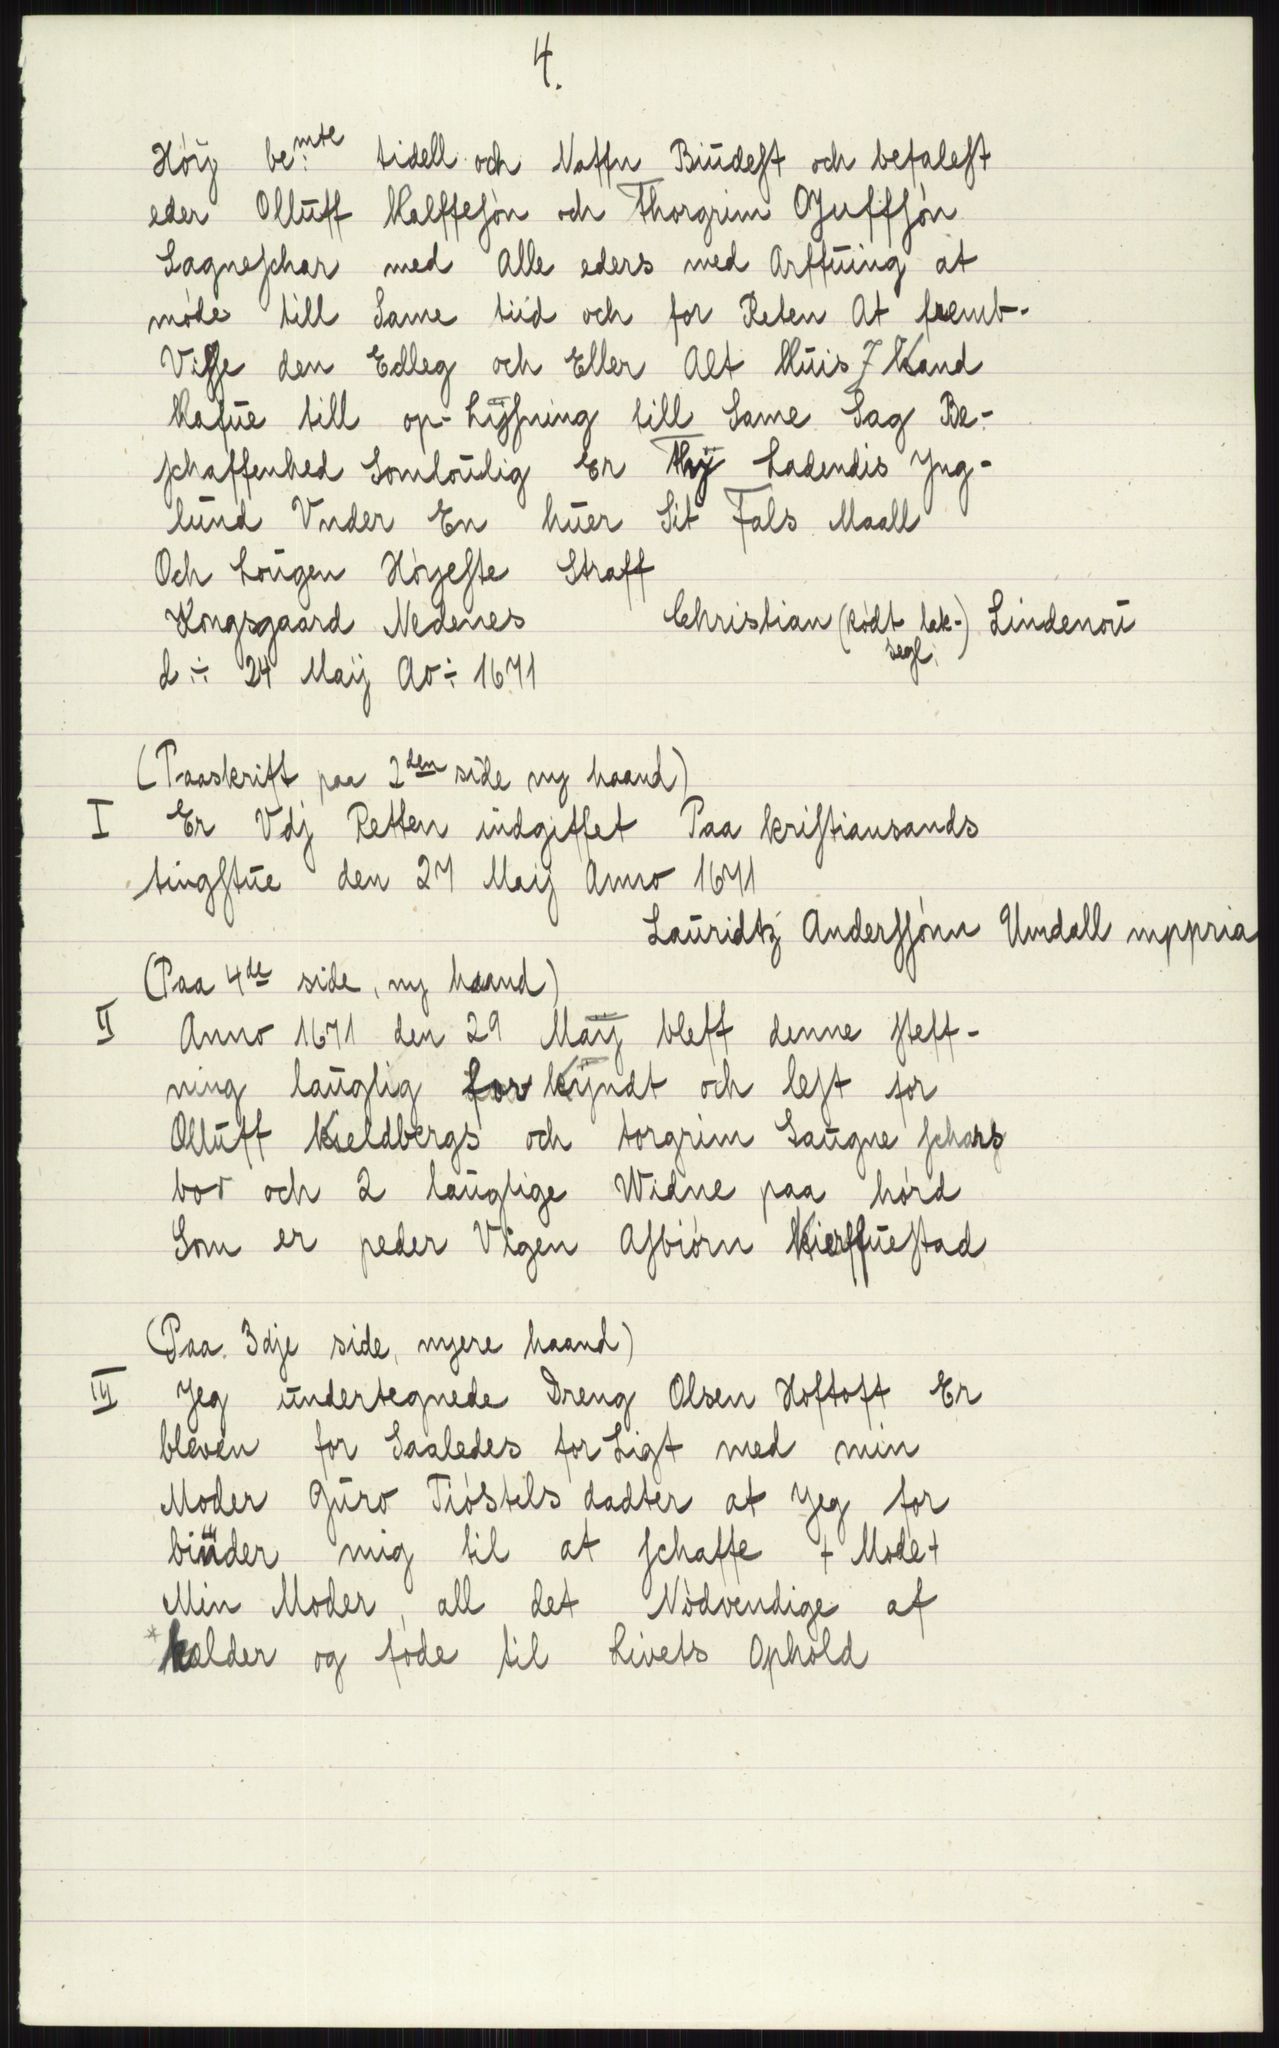 4.
Höÿ be:mte tidell och Naffn Biudest och befalest
eder Olluff Kalffesön och Thorgrim Gjuffsön
Sagneschar med Alle eders med Arffuing at
möde till Same tiid och for Reten At fremb-
Visse den Edleg och Eller Alt Huis J Kand
Hafue till op-Lÿsning till Same Sag Be-
schaffenhed Somloulig Er Thÿ Ladendis Yng-
lund Vnder En huer Sit Fals Maall
Och Lougen Höyeste Straff
Kongsgaard Nedenes Christian (rödt lak-segl.) Lindenou
d÷ 24 Maij Ao÷ 1671
(Paaskrift paa 2den side ny haand)
I Er Vdj Retten indgiffet Paa kristiansands
tingstue den 27 Maij Anno 1671
Lauridtz Anderssönn Undall mppria
(Paa 4de side, ny haand)
II Anno 1671 den 29 Maÿ bleff denne steff-
ning lauglig forkyndt och lest for
Olluff Kieldbergs och torgrim Saugne schars
bor och 2 lauglige Widne paa hörd
Som er peder Vigen Asbiörn Kierffuestad
(Paa 3dje side, nyere haand)
III Jeg undertegnede Dreng Olsen Hoftoft Er
bleven for Saaledes for Ligt med min
Moder Guro Tiöstels dadter at Jeg for
binder mig til at schaffe + Mode+
Min Moder, all det Nödvendige af
*kælder og föde til Livets Ophold